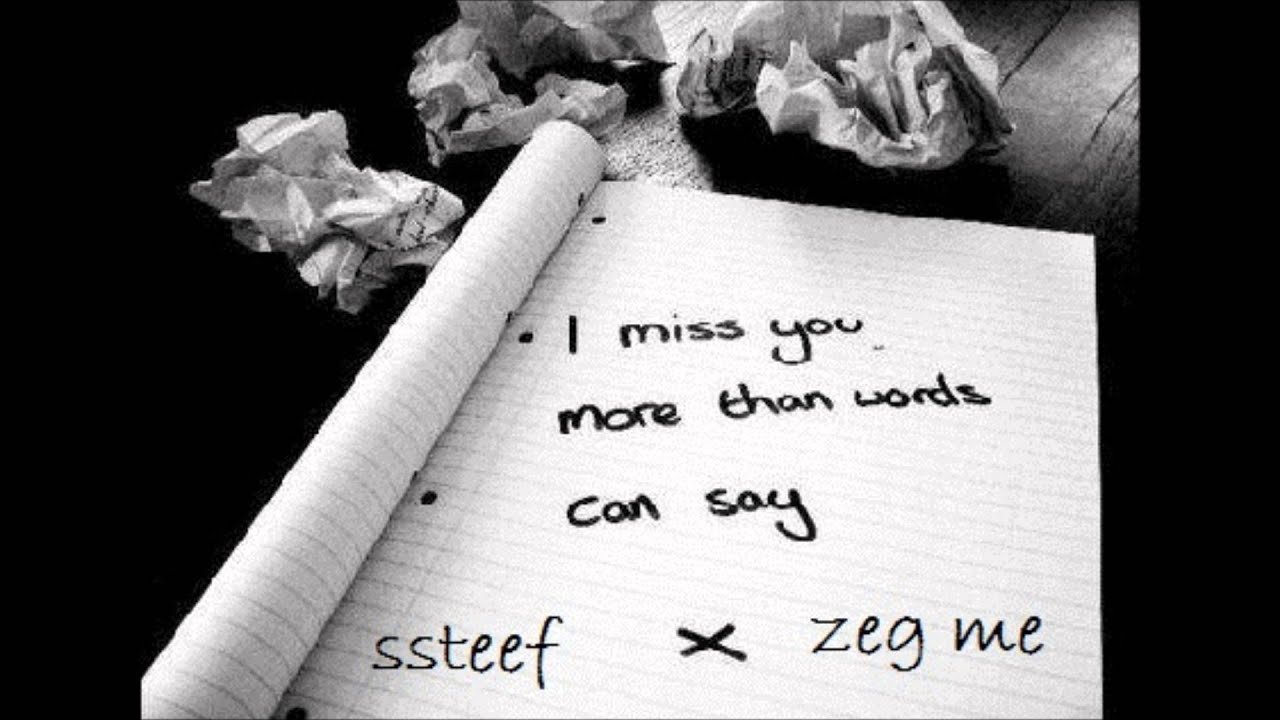 I miss you
more than words
can say
ssteef x zeg me